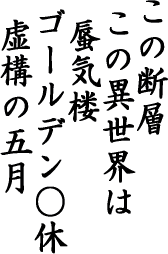 この断層
この異世界は
蜃気楼
ゴールデン〇休
虚構の五月